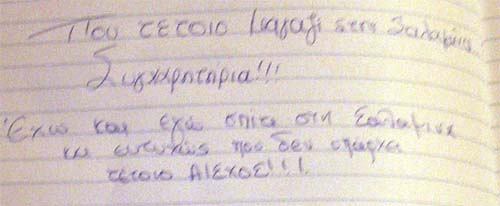 Που τέτοιο μαγαζί στην Σαλαμίνα!
Συγχαρητήρια!!!
Έχω και εγώ σπίτι στη Σαλαμίνα
κι ευτυχώς που δεν υπάρχει
τέτοιο ΑΙΣΧΟΣ!!!!